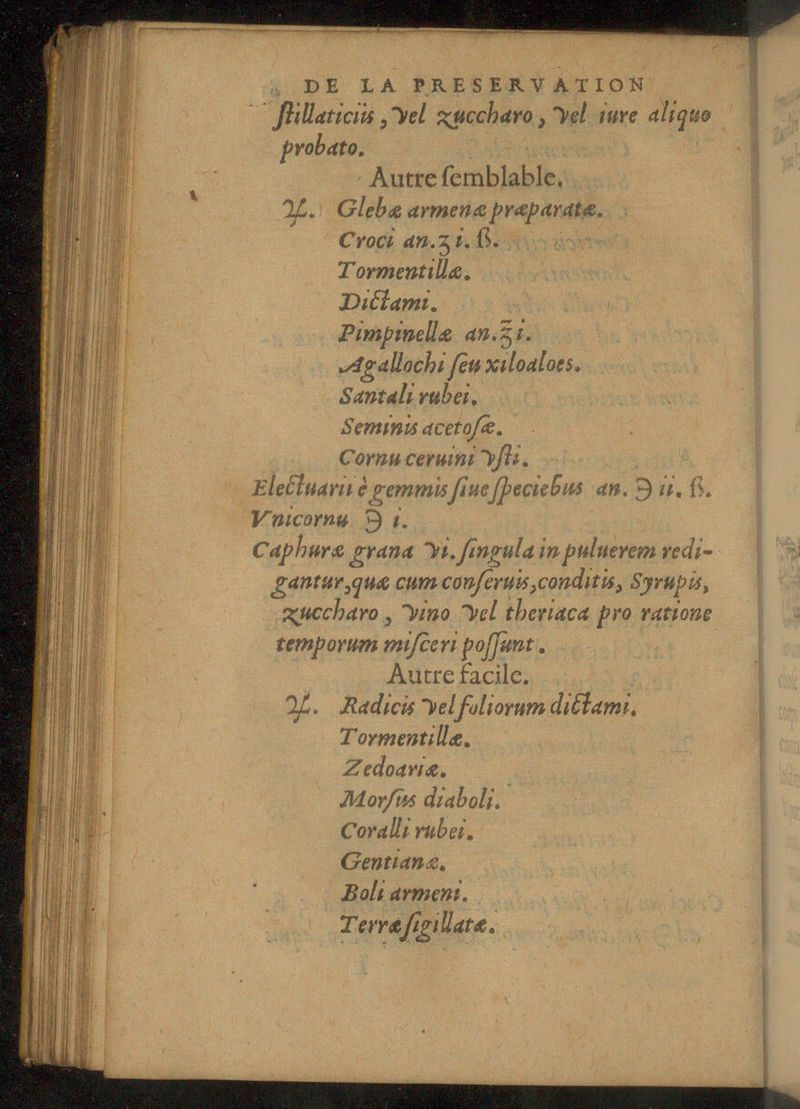 DE LA PRESERVATION
ſtillaticiis, vel zuccharo, vel iure aliquo
probato.
Autre ſemblable.
♃. Glebæ armenæ præparatæ.
Croci an. ʒ i. ß.
Tormentillæ.
Dictami.
Pimpinellæ an. ʒ i.
Agallochi ſeu xiloaloes.
Santali rubei.
Seminis acetoſæ.
Cornu ceruini vſti.
Electuarii è gemmis ſiue ſpeciebus an. ℈ ii. ß.
Vnicornu ℈ i.
Caphuræ grana vi. ſingula in puluerem redi-
gantur, quæ cum conſeruis, conditis, Syrupis,
zuccharo, vino vel theriaca pro ratione
temporum miſceri poſſunt.
Autre facile.
♃. Radicis vel foliorum dictami.
Tormentillæ.
Zedoariæ.
Morſus diaboli.
Coralli rubei.
Gentianæ.
Boli armeni.
Terræ ſigillatæ.